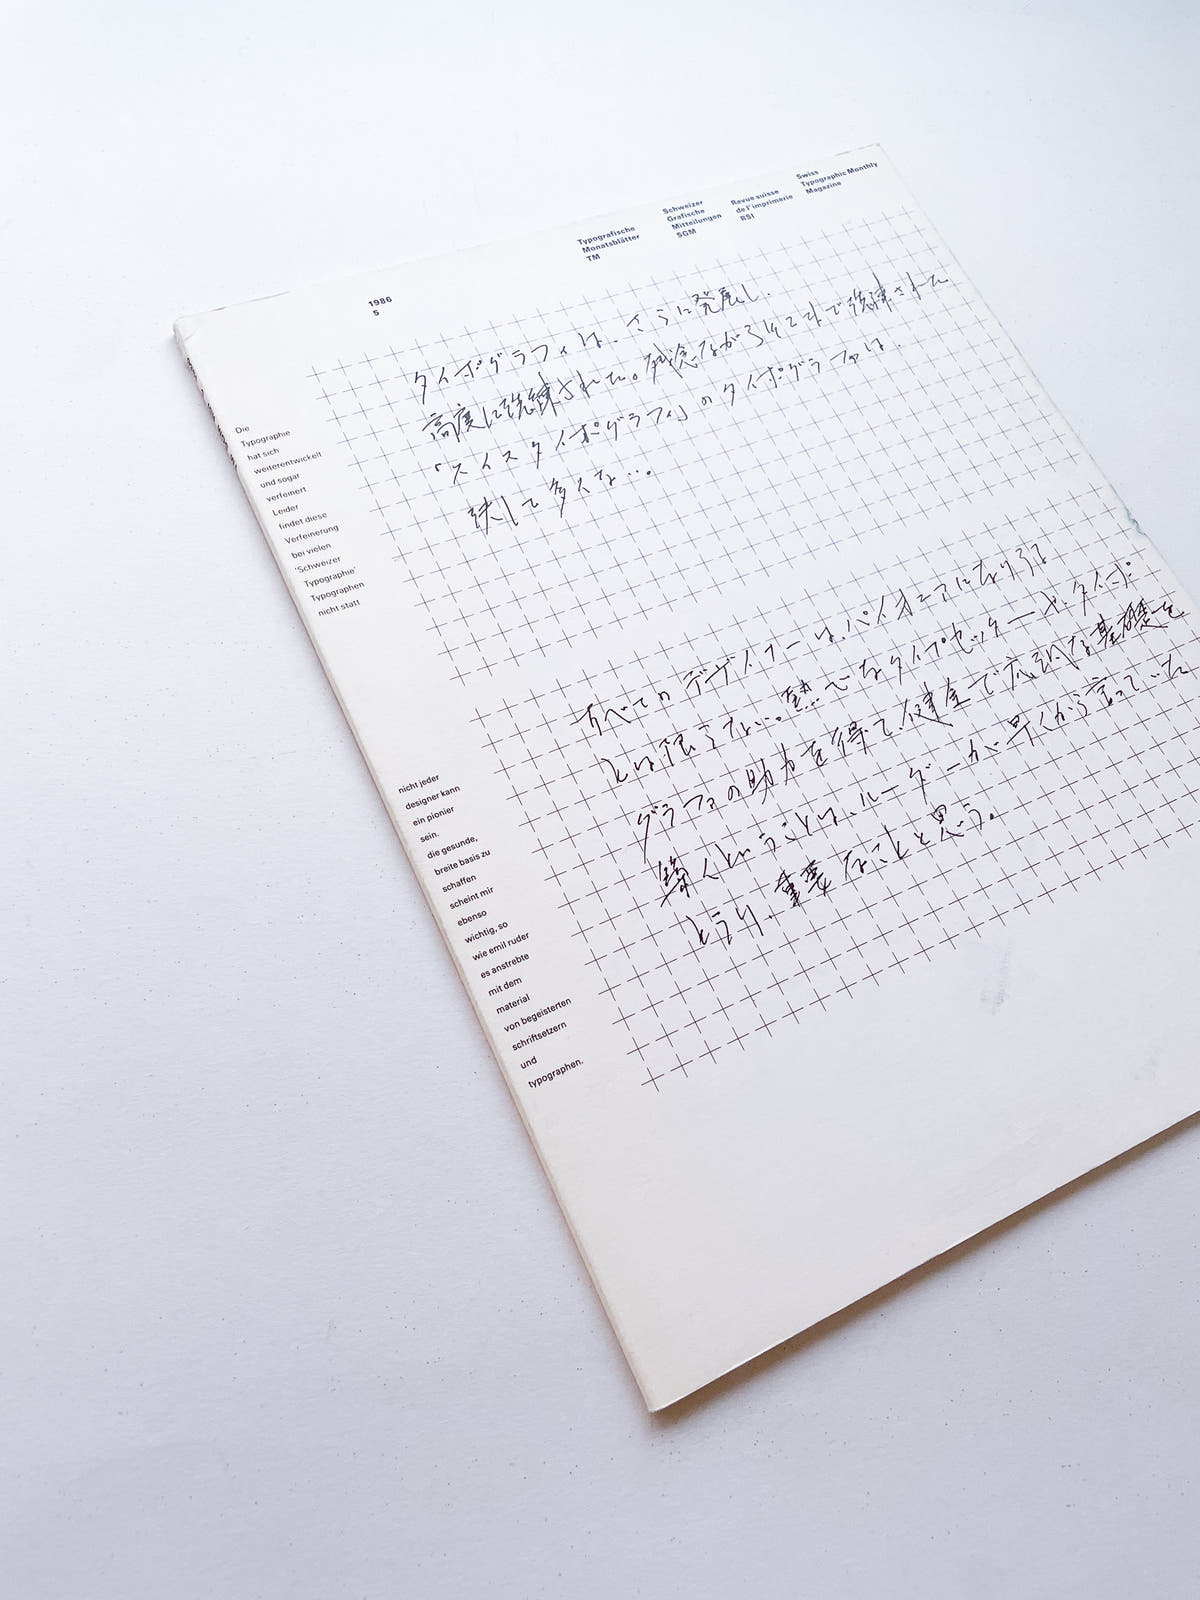 Typografische
Monatsblätter
TM
Schweizer
Grafische
Mitteilungen
SGM
Revue suisse
de l'imprimerie
RSI
Swiss
Typographic Monthly
Magazine
1986
5
Die
Typographie
hat sich
weiterentwickelt
und sogar
verfeinert
Leider
findet diese
Verfeinerung
bei vielen
'Schweizer
Typographie'
Typographen
nicht statt
タイポグラフィは、さらに発展し、
高度に洗練された。残念ながらそこまで洗練された
「スイスタイポグラフィ」のタイポグラファは、
決して多くない。
nicht jeder
designer kann
ein pionier
sein.
die gesunde,
breite basis zu
schaffen
scheint mir
ebenso
wichtig, so
wie emil ruder
es anstrebte
mit dem
material
von begeisterten
schriftsetzern
und
typographen.
すべてのデザイナーは、パイオニアになりうる
とは限らない。熱心なタイプセッターと、タイポ
グラファの助力を得て、健全で広汎な基礎を
築くということは、ルーダーが早くから言っていた
とおり、重要なことと思う。